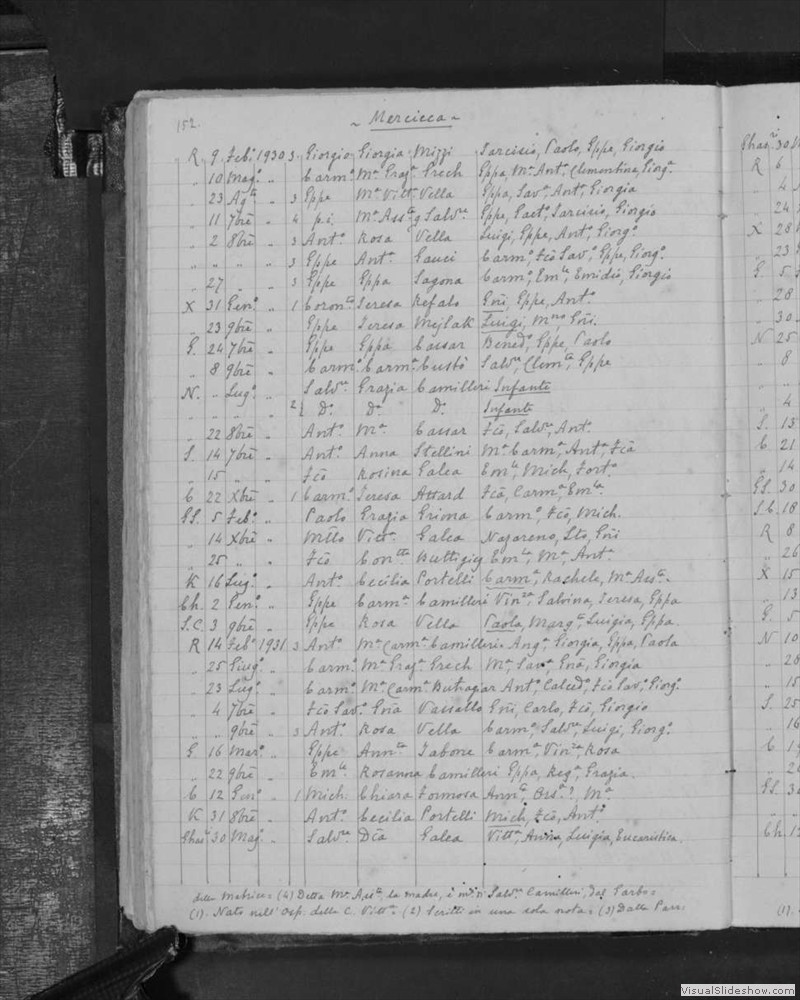 152.
~ Mercieca ~
R 9 Feb.º 1930 3 Giorgio Giorgia Mizzi Tarcisio, Paolo, Gppe, Giorgio
„ 10 Mag.º „ Carm.º M.ª Graz.ª Grech Gppa, M.ª Ant.ª Clementina, Giorg.ª
„ 23 Ag.to „ 3 Gppe M.ª Vitt.ª Vella Gppa, Sav.ª Ant.ª, Giorgia
„ 11 7bre „ 4 p.i. M.ª Ass.ta Salv.re Gppe, Gaet.º Tarcisio, Giorgio
„ 2 8bre „ 3 Ant.º Rosa Vella Luigi, Gppe, Ant.º, Giorg.º
„ „ „ „ 3 Gppe Ant.ª Gauci Carm.º, Fcõ Sav.º, Gppe, Giorg.º
„ 27 „ „ 3 Gppe Gppa Sagona Carm.º, Em.le, Emidio, Giorgio
X 31 Gen.º „ 1 Coron.to Teresa Refalo Gni, Gppe, Ant.º
„ 23 9bre „ Gppe Teresa Mejlak Luigi, M.no, Gni.
G. 24 7bre „ Gppe Gppa Cassar Bened.º, Gppe, Paolo
„ 8 9bre „ Carm.º Carm.ª Cusbò Salv.re, Clem.te, Gppe
N. „ Lug.º „ Salv.re Grazia Camilleri Infante
„ „ „ „ 2{ D.º D.ª D.º Infante
„ 22 8bre „ Ant.º M.ª Cassar Fcõ, Salv.re, Ant.º
S. 14 7bre „ Ant.º Anna Stellini M.ª Carm.ª, Ant.ª, Fcã
„ 15 „ „ Fcõ Rosina Galea Em.le, Mich, Fort.º
C 22 Xbre „ 1 Carm.º Teresa Attard Fcã, Carm.ª, Em.la
GS. 5 Feb.º „ Paolo Grazia Griona Carm.º, Fcõ, Mich.
„ 14 Xbre „ Mtto Vitt.ª Galea Nazareno, Gni
„ 25 „ „ Fcõ Con.tta Buttigieg Em.la, M.ª, Ant.ª
K 16 Lug.º „ Ant.º Cecilia Portelli Carm.ª, Rachele, M.ª Ass.ta
Ch. 2 Gen.º „ Gppe Carm.ª Camilleri Vin.za, Salvina, Teresa, Gppa
S.C. 3 9bre „ Gppe Rosa Vella Paola, Marg.ta, Luigia, Gppa.
R 14 Feb.º 1931 3 Ant.º M.ª Carm.ª Camilleri Ang.ª, Giorgia, Gppa, Paola
„ 25 Giug.º „ Carm.º M.ª Graz.ª Grech M.ª Sav.ª Gnã, Giorgia
„ 23 Lug.º „ Carm.º M.ª Carm.ª Ant.º, Calced.º, Fcõ Sav.º, Giorg.º
„ 4 7bre „ Fcõ Sav.º Gnã Vassallo Gni, Carlo, Fcõ, Giorgio
„ „ 9bre „ 3 Ant.º Rosa Vella Carm.º, Salv.re, Luigi, Giorg.º
G. 16 Mar.º „ Gppe Ann.ta Tabone Carm.ª, Vin.za, Rosa
„ 22 9bre „ Em.le Rosanna Camilleri Gppa, Reg.ª, Grazia.
C 12 Gen.º „ 1 Mich. Chiara Formosa Ann.ta, Ors.ª?, M.ª
K 31 8bre „ Ant.º Cecilia Portelli Mich, Fcõ, Ant.º
Ghai 30 Mag.º „ Salv.re Dcã Galea Vitt.ª, Anna, Luigia, Eucaristica.
della Matrice: (4) Detta M.ª Ass.ta, la madre, è Salv.re Camilleri, dal Garbo:
(1). Nato nell' Osp. della C. Vitt.ª (2) Scritti in una sola nota: (3) Dalla Parr.
Ghaj 30
R 6
„ 4
„ 24
X 28
„ 23
G. 5
„ 28
„ 30
N 25
„ 8
„ 4
S. 13
C 21
„ 14
GS. 30
S.C. 18
R 8
„ 26
X 15
„ 13
G. 5
N 10
„ 28
„ 15
S. 25
„ 16
Ch. 12
(1).
VisualSlideshow.com